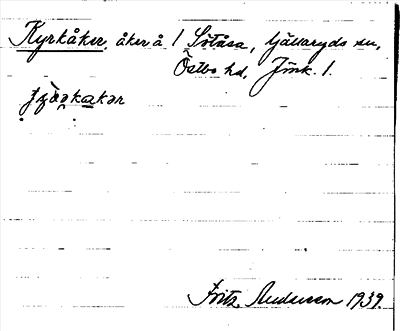 Kyrkåker, åker å 1 Sötåsa, Tjällaryds sn,
Östbo hd, Jönk. l.
Fritz Andersson 1939.